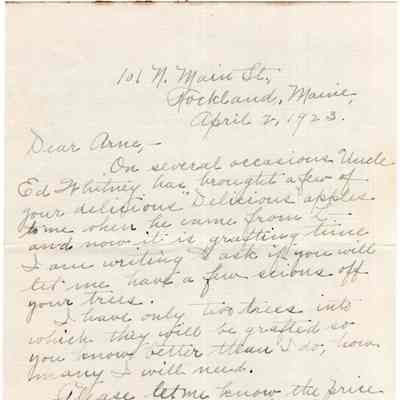 101 N. Main St.,
Rockland, Maine,
April 2, 1923.
Dear Arne,-
On several occasions Uncle
Ed Whitney has brought a few of
your delicious "Delicious" apples
to me when he came from
and now it is grafting time
I am writing to ask if you will
let me have a few scions off
your trees.
I have only two trees into
which they will be grafted so
you know better than I do, how
many I will need.
Please let me know the price